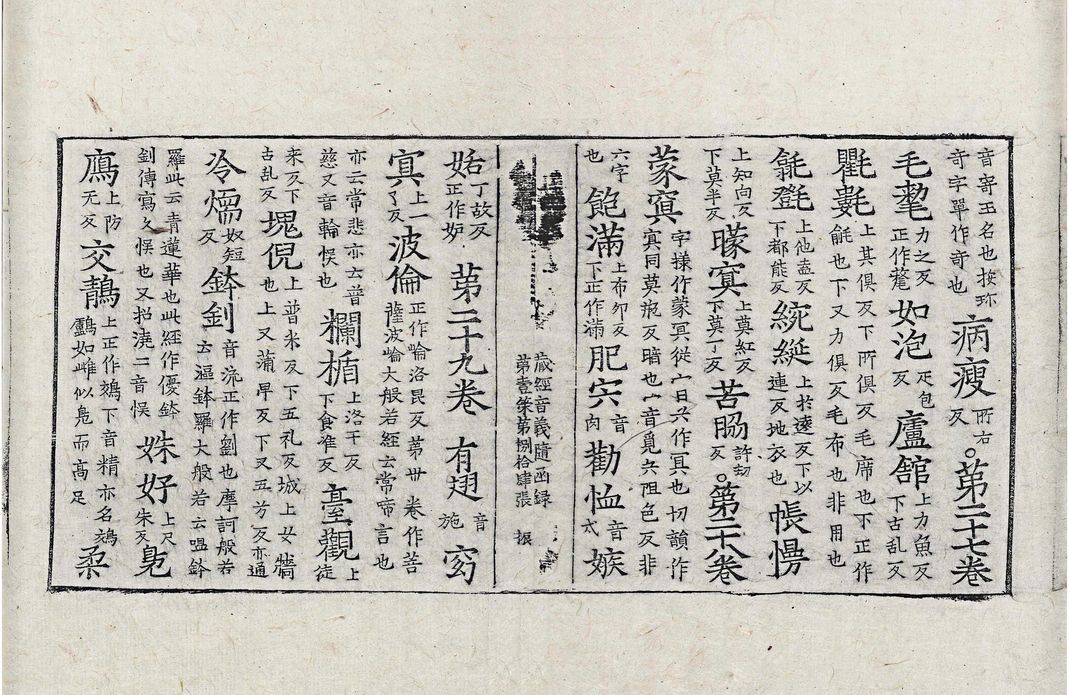 音寄王名也按玠 奇字單作奇也 病瘦 所右反 第二十七卷
毛氂 力之反正作氂 如泡 疋包反 廬舘 上力魚反下古乱反
氍𣯜 上其俱反下所俱反毛席也下正作毹也下又力俱反毛布也非用也
毾㲪 上他盍反下都能反 綩綖 上於遠反下以連反地衣也 帳幔
上知向反下莫半反 矇㝠 上莫紅反下莫丁反 苦脇 許劫反 第二十八卷
蒙㝠 字樣作蒙冥從冖日六作冥也切韻作㝠同莫瓶反暗也冖音覓六徂色反非
六字也 飽滿 上布卯反下正作滿 肥宍 音肉 勸恤 音太 嫉
藏經音義隨函録 第壹策第捌拾肆張 振
妬 丁故反正作妒 第二十九卷 有翅 音施 窈
㝠 上一了反 波倫 正作崘洛昆反第卅卷作菩薩波崘大般若經云常啼言也
亦云常悲亦云普慈又音輪悮也 欄楯 上洛干反下食准反 臺觀 上徒
来反下古乱反 塊倪 上普米反下五礼反城上女牆也上又蒲早反下又五兮反亦通
冷煗 奴短反 鉢釗 音流正作劉也摩訶般若云漚鉢羅大般若云嗢鉢
羅此云青蓮華也此經作優鉢釗傳寫久悮也又招澆二音悮 姝好 上尺朱反 鳧
鴈 上防无反 交鶄 上正作鵁下音精亦名鵁鸕如雌似鳧而高足 柔